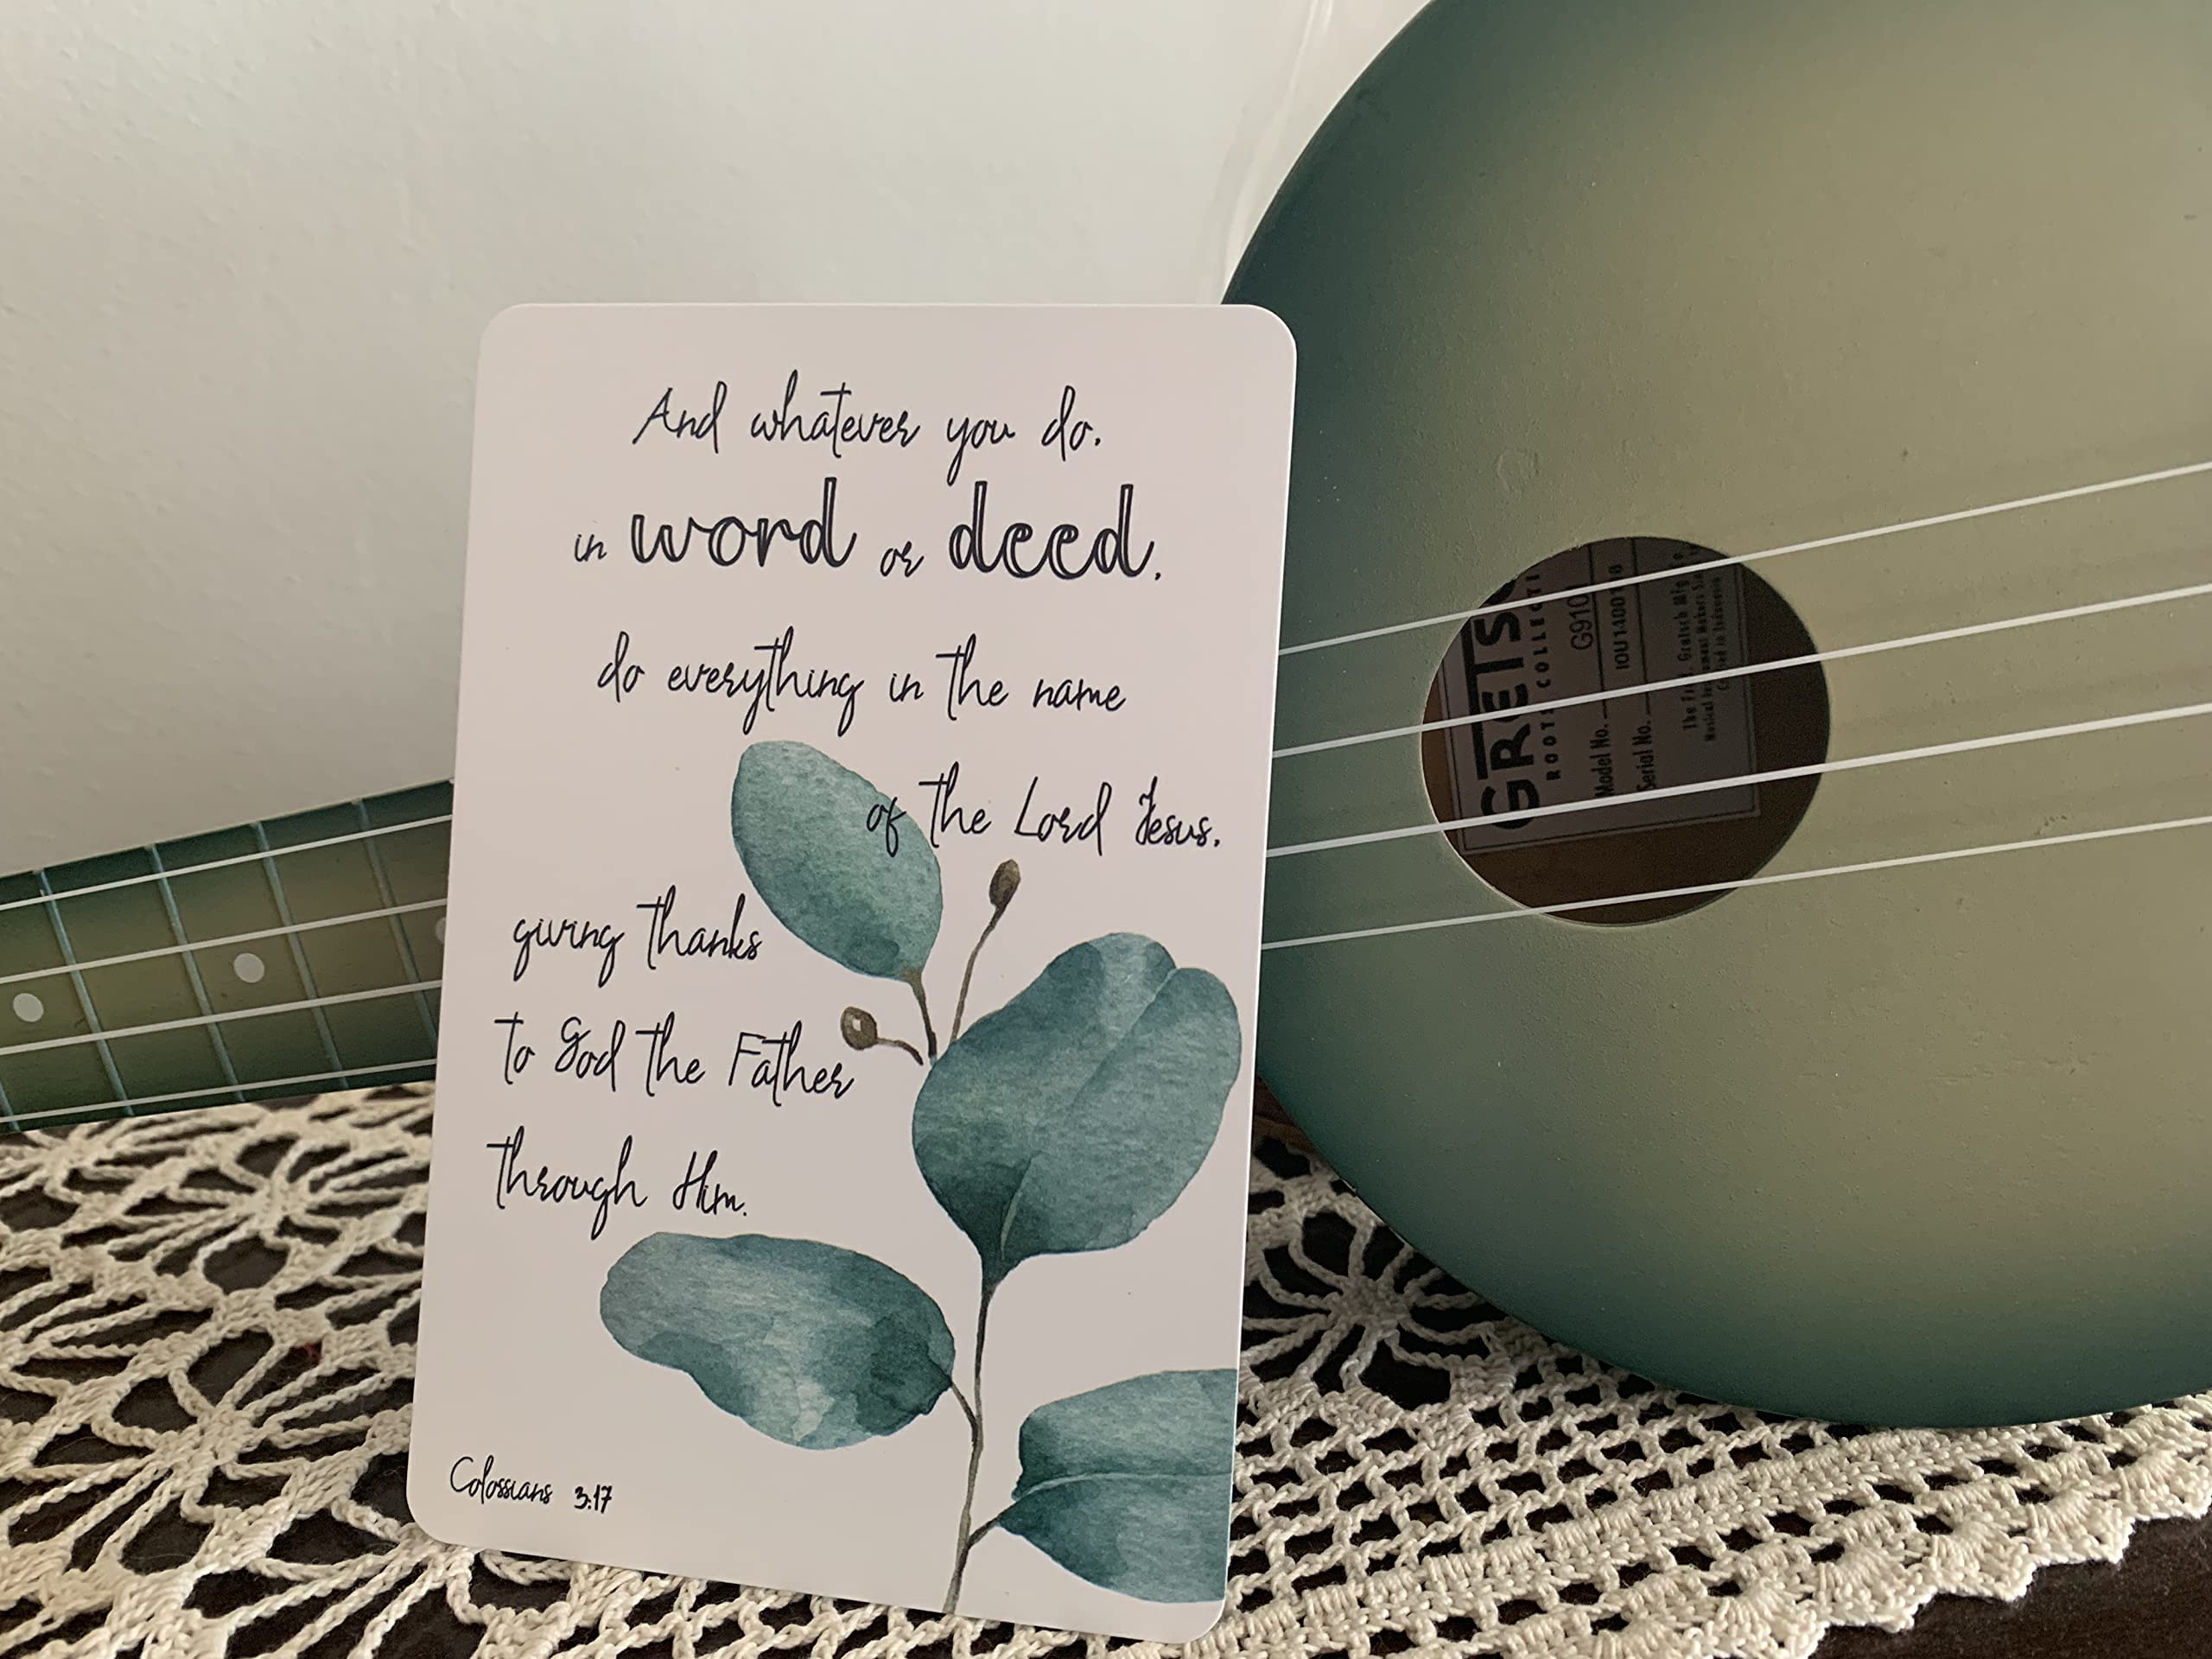 And whatever you do,
in word or deed,
do everything in the name
of the Lord Jesus,
giving thanks
to God the Father
through Him.
Colossians 3:17
GRETS
ROOTS COLLECTI
Model No. G910
Serial No. IOU1400
The Gretsch Mfg.
Musical Makers
in Indonesia